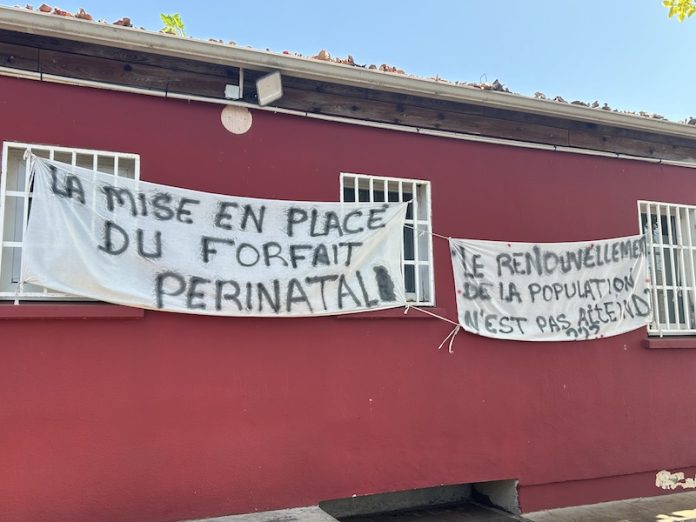 LA MISE EN PLACE
DU FORFAIT
PERINATAL!
LE RENOUVELLEMENT
DE LA POPULATION
N'EST PAS ATTEND
???